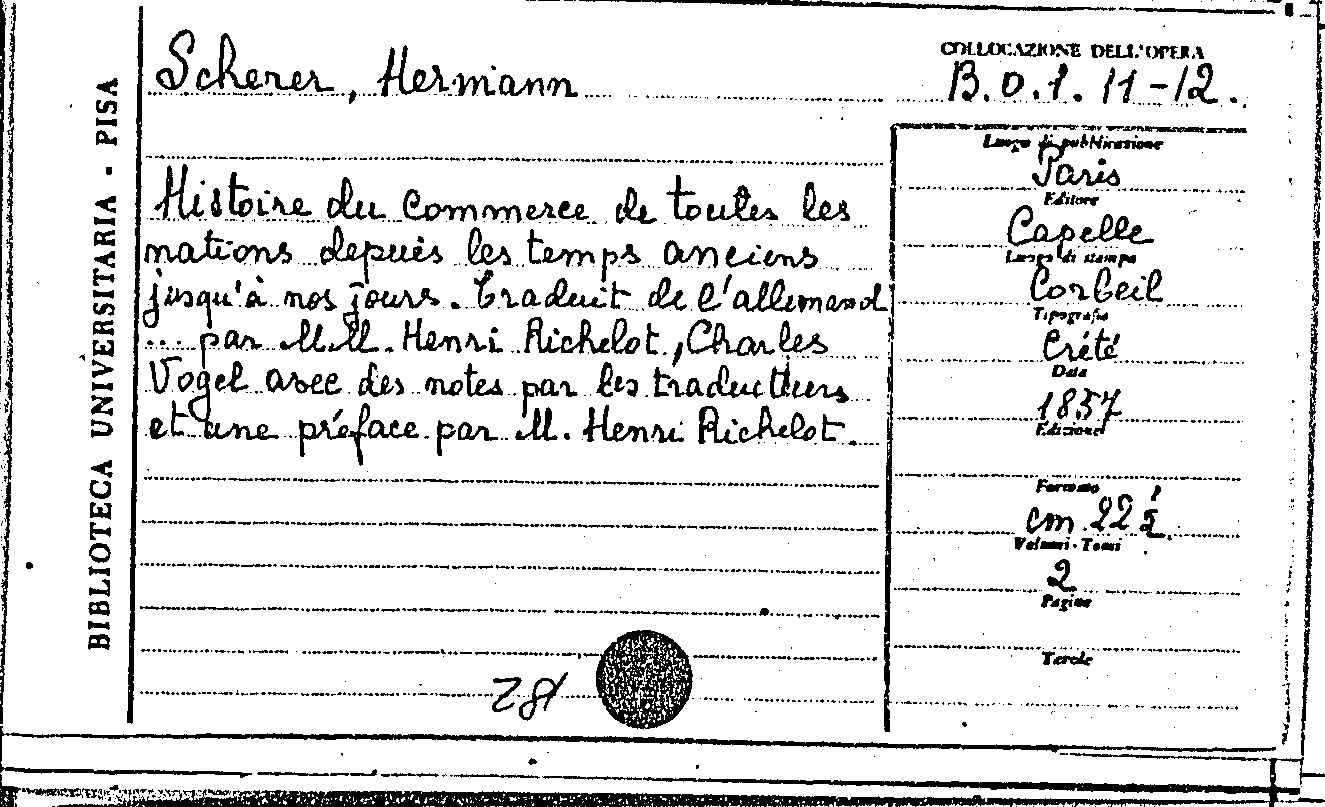 BIBLIOTECA UNIVERSITARIA - PISA
Scherer, Hermann
COLLOCAZIONE DELL'OPERA
B.O.1. 11-12.
Histoire du Commerce de toutes les
nations depuis les temps anciens
jusqu'à nos jours. Traduit de l'allemand
... par MM. Henri Richelot, Charles
Vogel avec des notes par les traducteurs
et une préface par M. Henri Richelot.
Luogo di pubblicazione
Paris
Editore
Capelle
Luogo di stampa
Corbeil
Tipografia
Crété
Data
1857
Edizione
Formato
cm 22 5
Volumi - Tomi
2
Pagine
Tavole